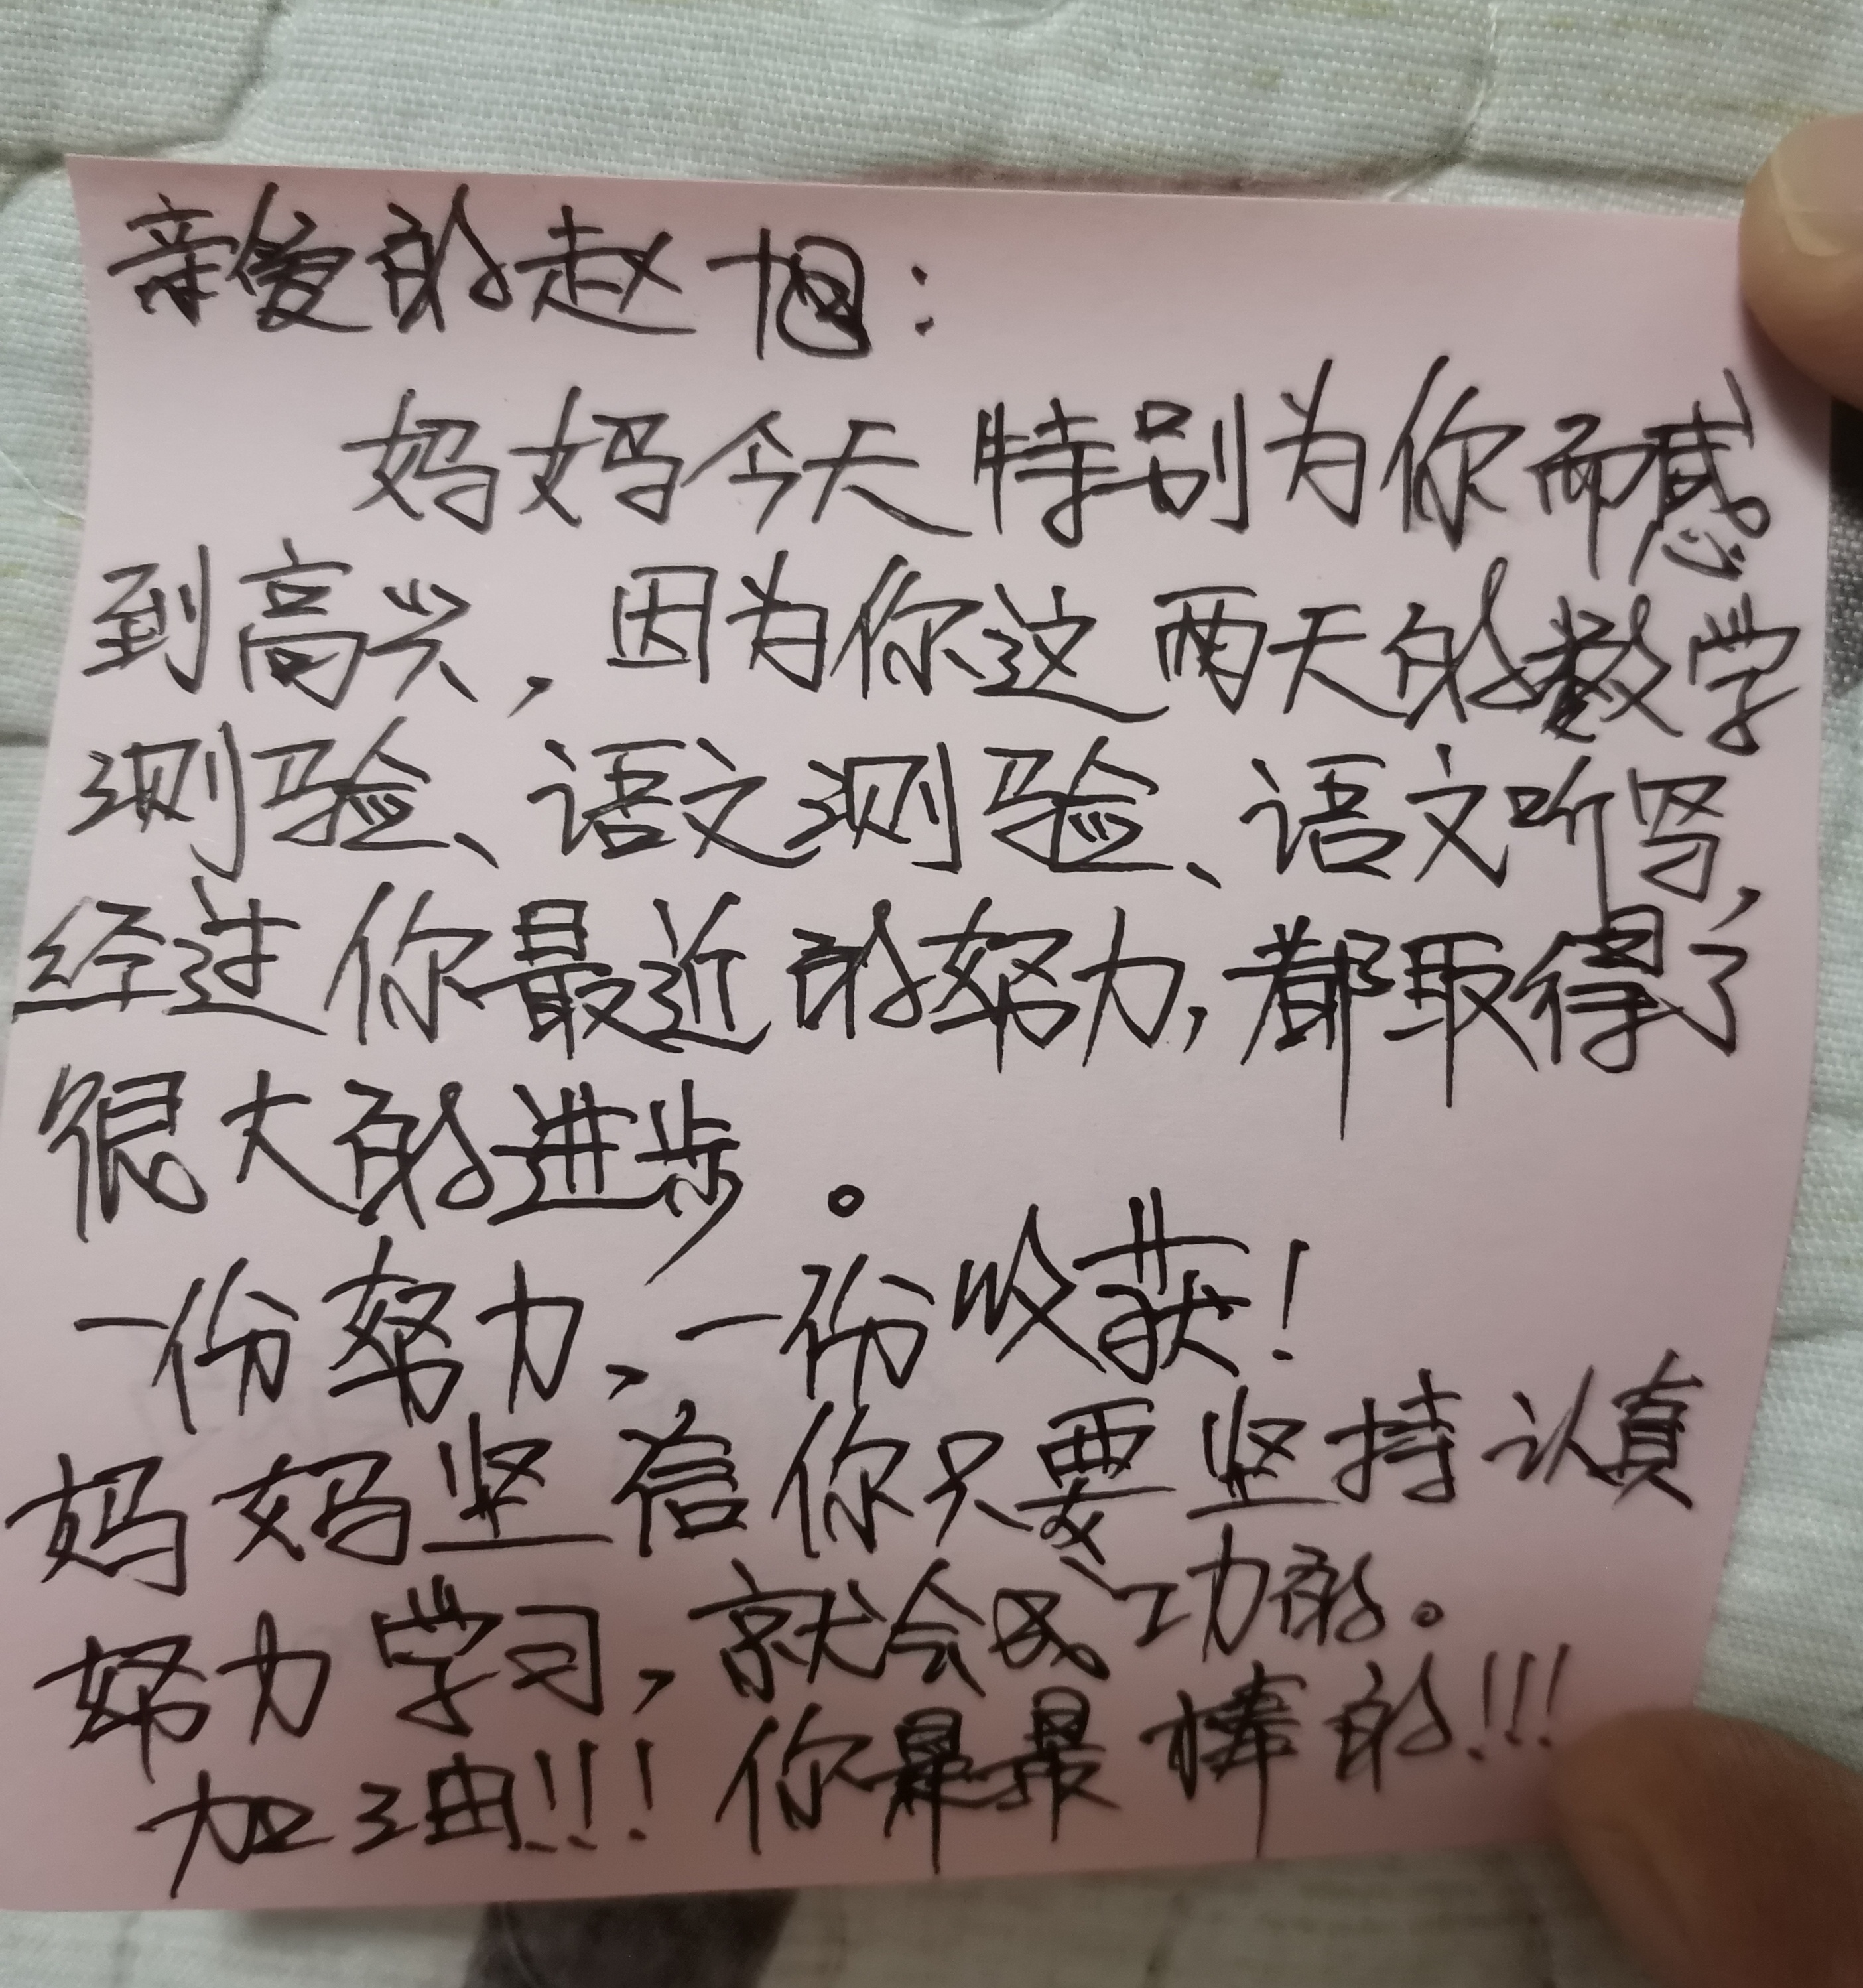 亲爱的赵旭：
妈妈今天特别为你而感
到高兴，因为你这两天的数学
测验、语文测验、语文听写，
经过你最近的努力，都取得了
很大的进步。
一份努力，一份收获！
妈妈坚信你只要坚持认真
努力学习，就会成功的。
加油!!! 你是最棒的!!!